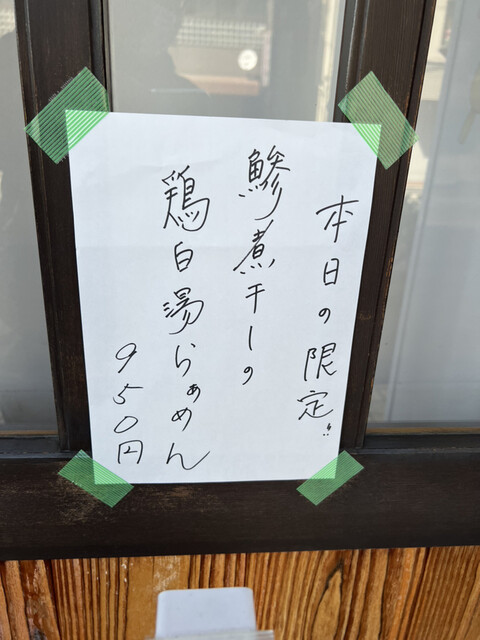 本日の限定!!
鯵煮干しの
鶏白湯らぁめん
950円